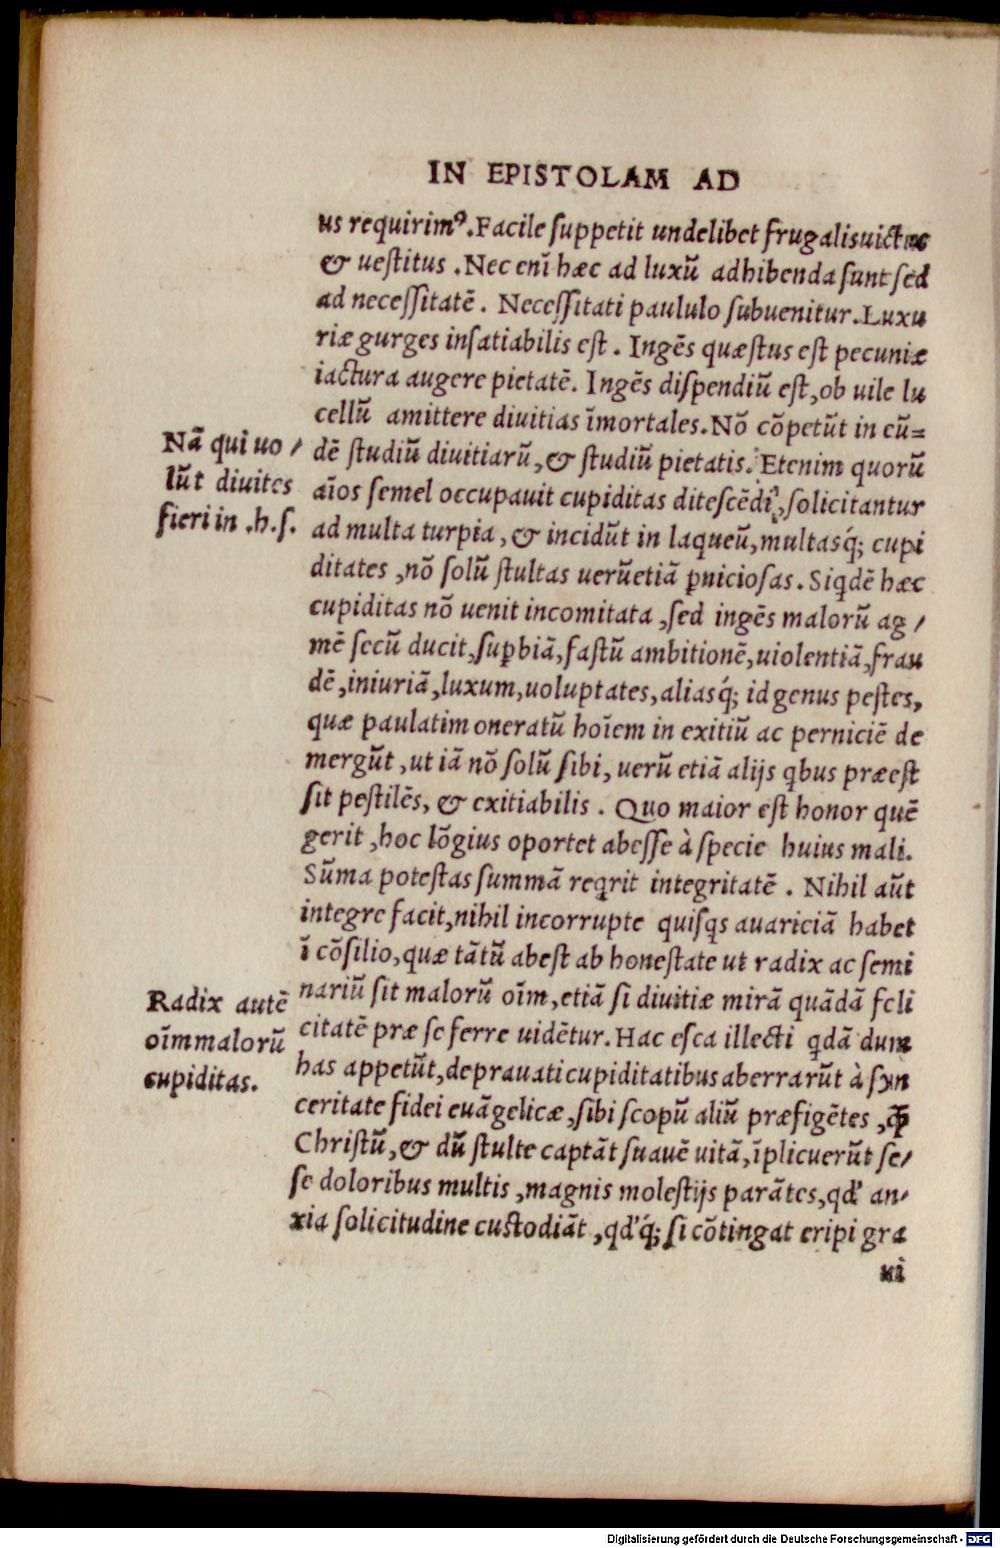 IN EPISTOLAM AD
us requirimꝰ. Facile ſuppetit undelibet frugalis uictus
& ueſtitus . Nec enī hæc ad luxū adhibenda ſunt ſed
ad neceſſitatē . Neceſſitati paululo ſubuenitur. Luxu
riæ gurges inſatiabilis eſt . Ingēs quæſtus eſt pecuniæ
iactura augere pietatē. Ingēs diſpendiū eſt, ob uile lu
cellū amittere diuitias īmortales. Nō cōpetūt in eū=
Nā qui uo /
dē ſtudiū diuitiarū, & ſtudiū pietatis. Etenim quorū
lūt diuites
aīos ſemel occupauit cupiditas diteſcēdi, ſolicitantur
fieri in .h.ſ.
ad multa turpia, & incidūt in laqueū, multasq́; cupi
ditates , nō ſolū ſtultas uerūetiā ꝑnicioſas. Siqdē hæc
cupiditas nō uenit incomitata , ſed ingēs malorū ag /
mē ſecū ducit, ſuꝑbiā, faſtū ambitionē, uiolentiā, frau
dē, iniuriā, luxum, uoluptates, aliasq́; id genus peſtes,
quæ paulatim oneratū hoīem in exitiū ac perniciē de
mergūt , ut iā nō ſolū ſibi, uerū etiā alijs qbus præeſt
ſit peſtilēs, & exitiabilis . Quo maior eſt honor quē
gerit , hoc lōgius oportet abeſſe à ſpecie huius mali.
Sūma poteſtas ſummā reqrit integritatē . Nihil aūt
integre facit, nihil incorrupte quiſqs auariciā habet
ī cōſilio, quæ tātū abeſt ab honeſtate ut radix ac ſemi
Radix autē
nariū ſit malorū oīm, etiā ſi diuitiæ mirā quādā feli
oīm malorū
citatē præ ſe ferre uidētur. Hac eſca illecti qdā dum
cupiditas.
has appetūt, deprauati cupiditatibus aberrarūt à ſyn
ceritate fidei euāgelicæ, ſibi ſcopū aliū præfigētes , ꝙ̄
Chriſtū, & dū ſtulte captāt ſuauē uitā, īplicuerūt ſe/
ſe doloribus multis , magnis moleſtijs parātes, qd' an/
xia ſolicitudine cuſtodiāt , qd'q́; ſi cōtingat eripi gra
ui
Digitalisierung gefördert durch die Deutsche Forschungsgemeinschaft - DFG